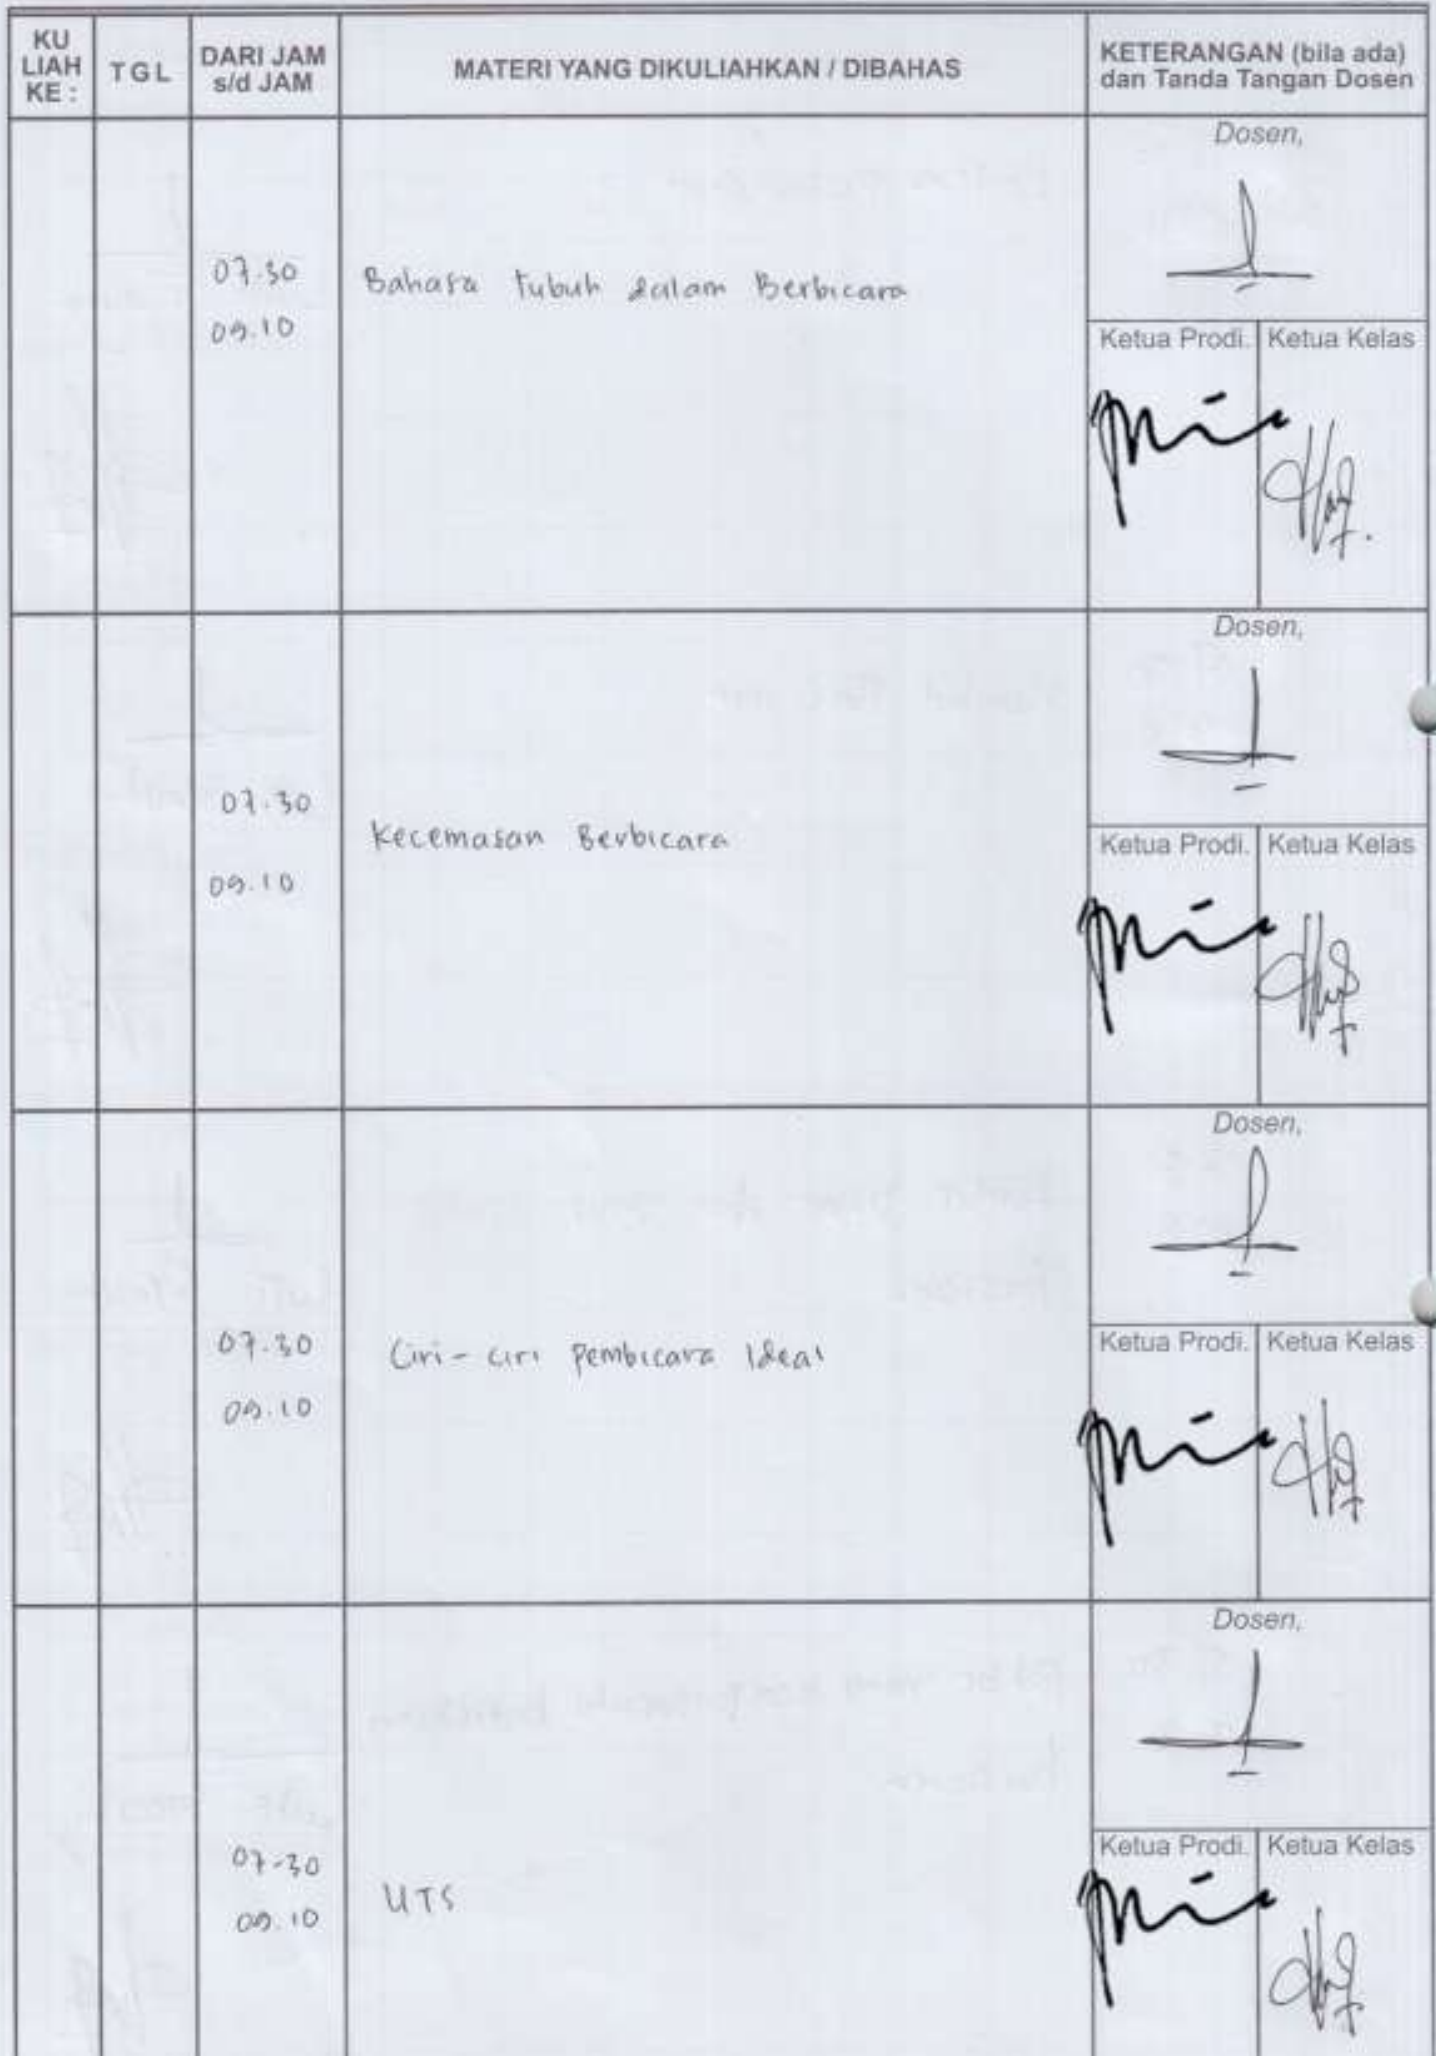 KU LIAH KE :
TGL
DARI JAM s/d JAM
MATERI YANG DIKULIAHKAN / DIBAHAS
KETERANGAN (bila ada) dan Tanda Tangan Dosen
Dosen,
07.30
Bahasa tubuh dalam Berbicara
09.10
Ketua Prodi.
Ketua Kelas
Dosen,
07.30
Kecemasan Berbicara
09.10
Ketua Prodi.
Ketua Kelas
Dosen,
07.30
Ciri-ciri Pembicara Ideal
09.10
Ketua Prodi.
Ketua Kelas
Dosen,
07-30
UTS
09.10
Ketua Prodi.
Ketua Kelas